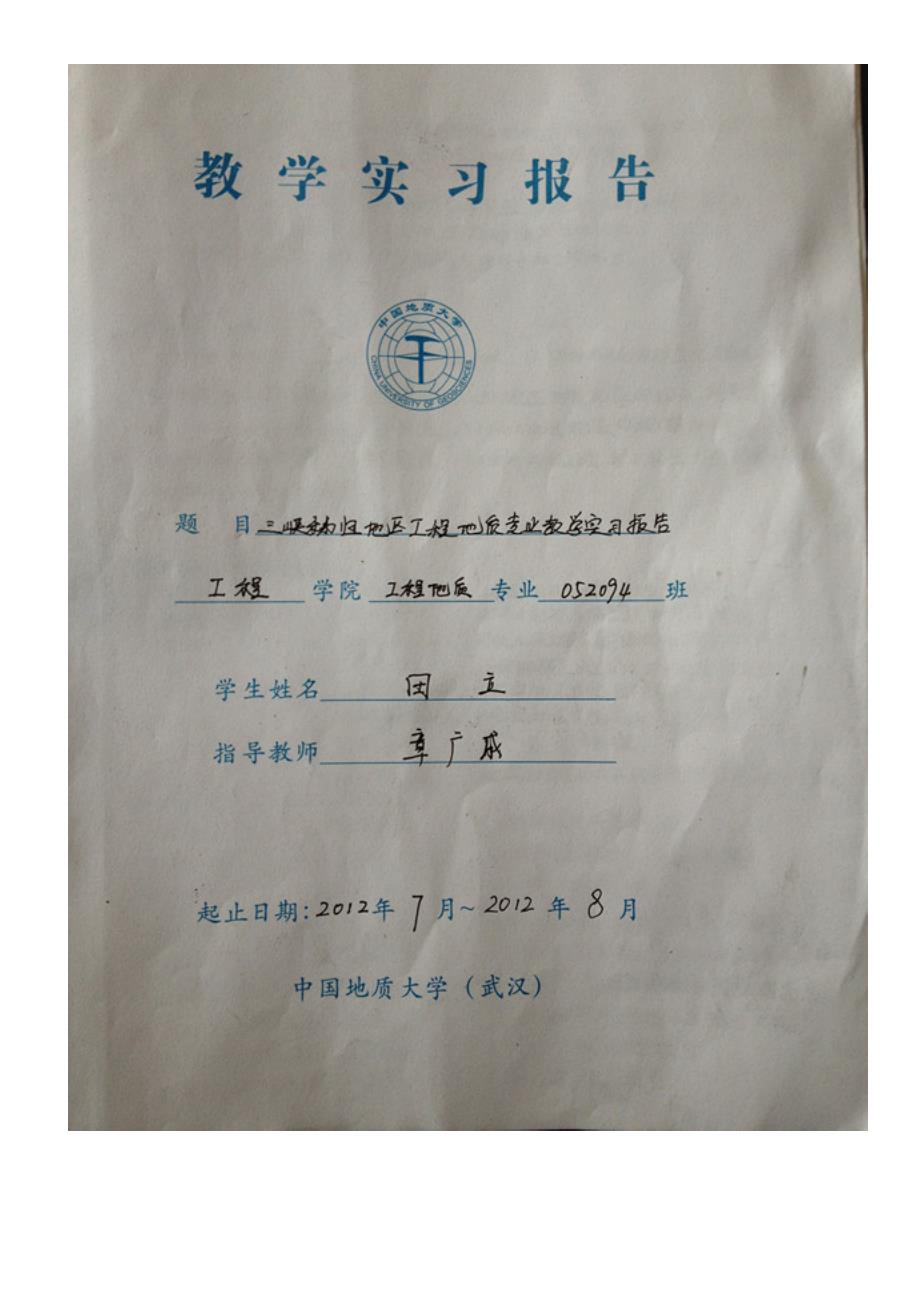 教学实习报告
中国地质大学
CHINA UNIVERSITY OF GEOSCIENCES
题 目 三峡秭归地区工程地质专业教学实习报告
工程 学院 工程地质 专业 052094 班
学生姓名 田 立
指导教师 章广成
起止日期:2012年 7 月~2012 年 8 月
中国地质大学(武汉)